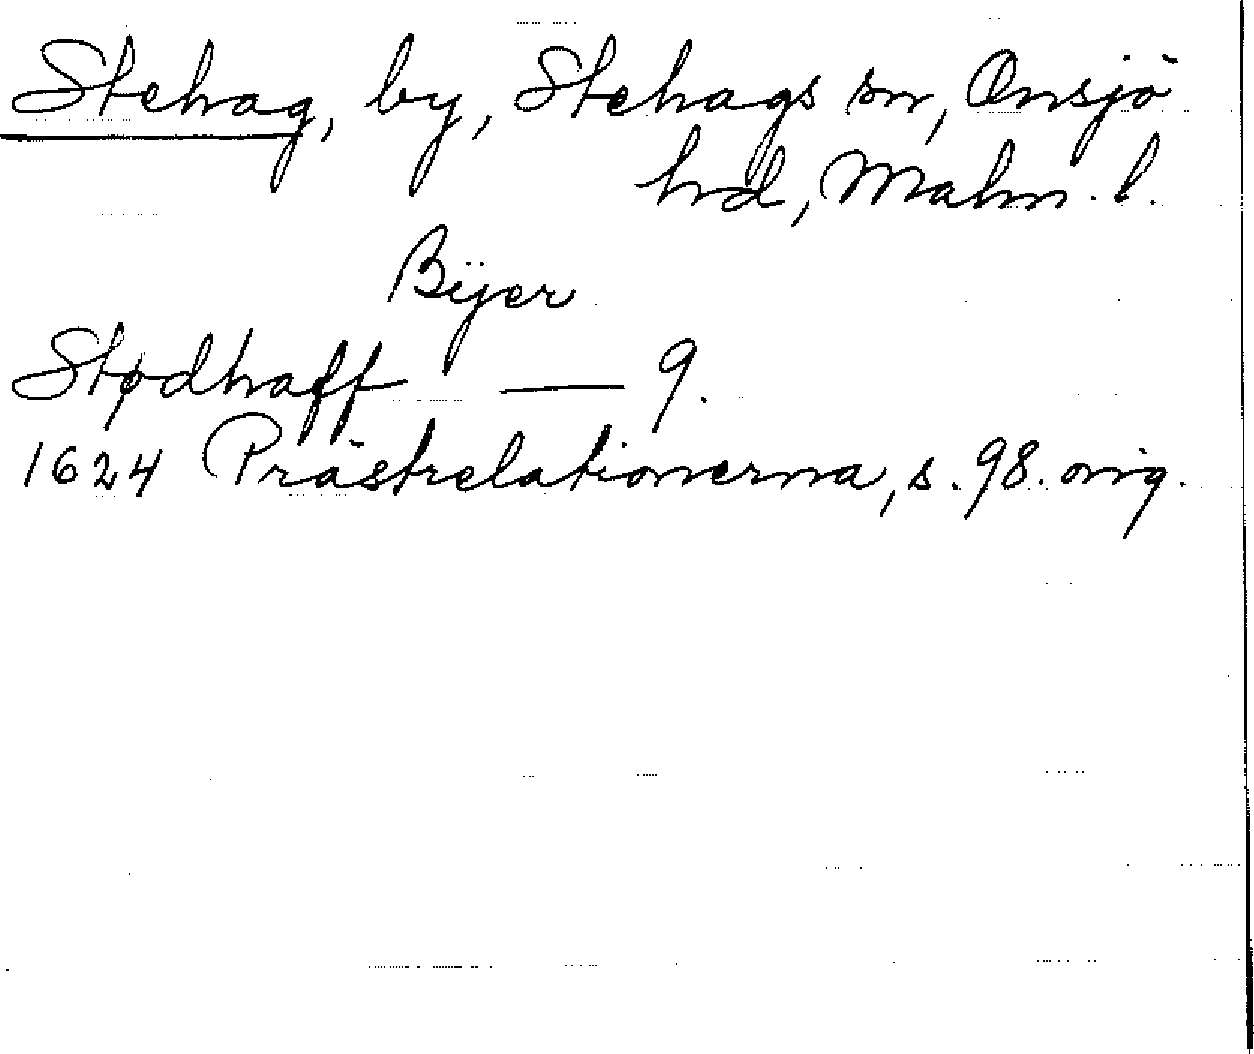 Stehag, by, Stehags sn, Onsjö
hd, Malm. l.
Bÿer
Stødhaff — 9.
1624 Prästrelationerna, s. 98. orig.